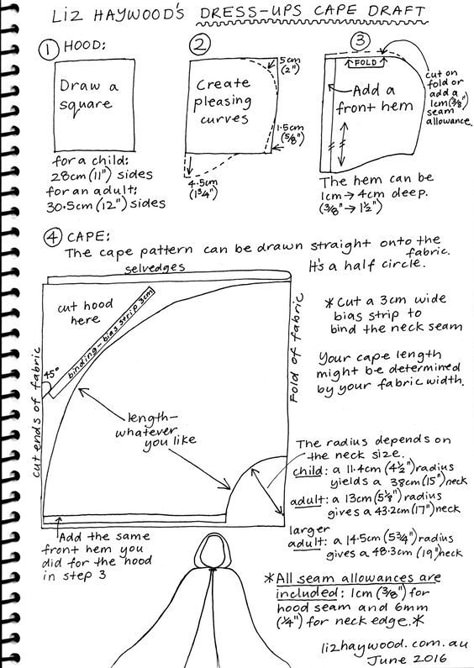 LIZ HAYWOOD'S DRESS-UPS CAPE DRAFT
① HOOD:
Draw a
square
for a child:
28cm (11") sides
for an adult:
30.5cm (12") sides
②
Create
pleasing
curves
5cm
(2")
1.5cm
(5/8")
4.5cm
(1¾")
③
FOLD
Add a
front hem
cut on
fold or
add a
1cm (3/8")
seam
allowance.
The hem can be
1cm → 4cm deep.
(3/8" → 1½")
④ CAPE:
The cape pattern can be drawn straight onto the
fabric.
It's a half circle.
selvedges
cut hood
here
binding - bias strip 3cm
45°
cut ends of fabric
Fold of fabric
length-
whatever
you like
*Cut a 3cm wide
bias strip to
bind the neck seam
Your cape length
might be determined
by your fabric width.
The radius depends on
the neck size.
child: a 11.4cm (4½") radius
yields a 38cm (15") neck
adult: a 13cm (5⅛") radius
gives a 43.2cm (17") neck
larger
adult: a 14.5cm (5¾") radius
gives a 48.3cm (19") neck
Add the same
front hem you
did for the hood
in step 3
*All seam allowances are
included: 1cm (3/8") for
hood seam and 6mm
(¼") for neck edge.*
lizhaywood.com.au
June 2016